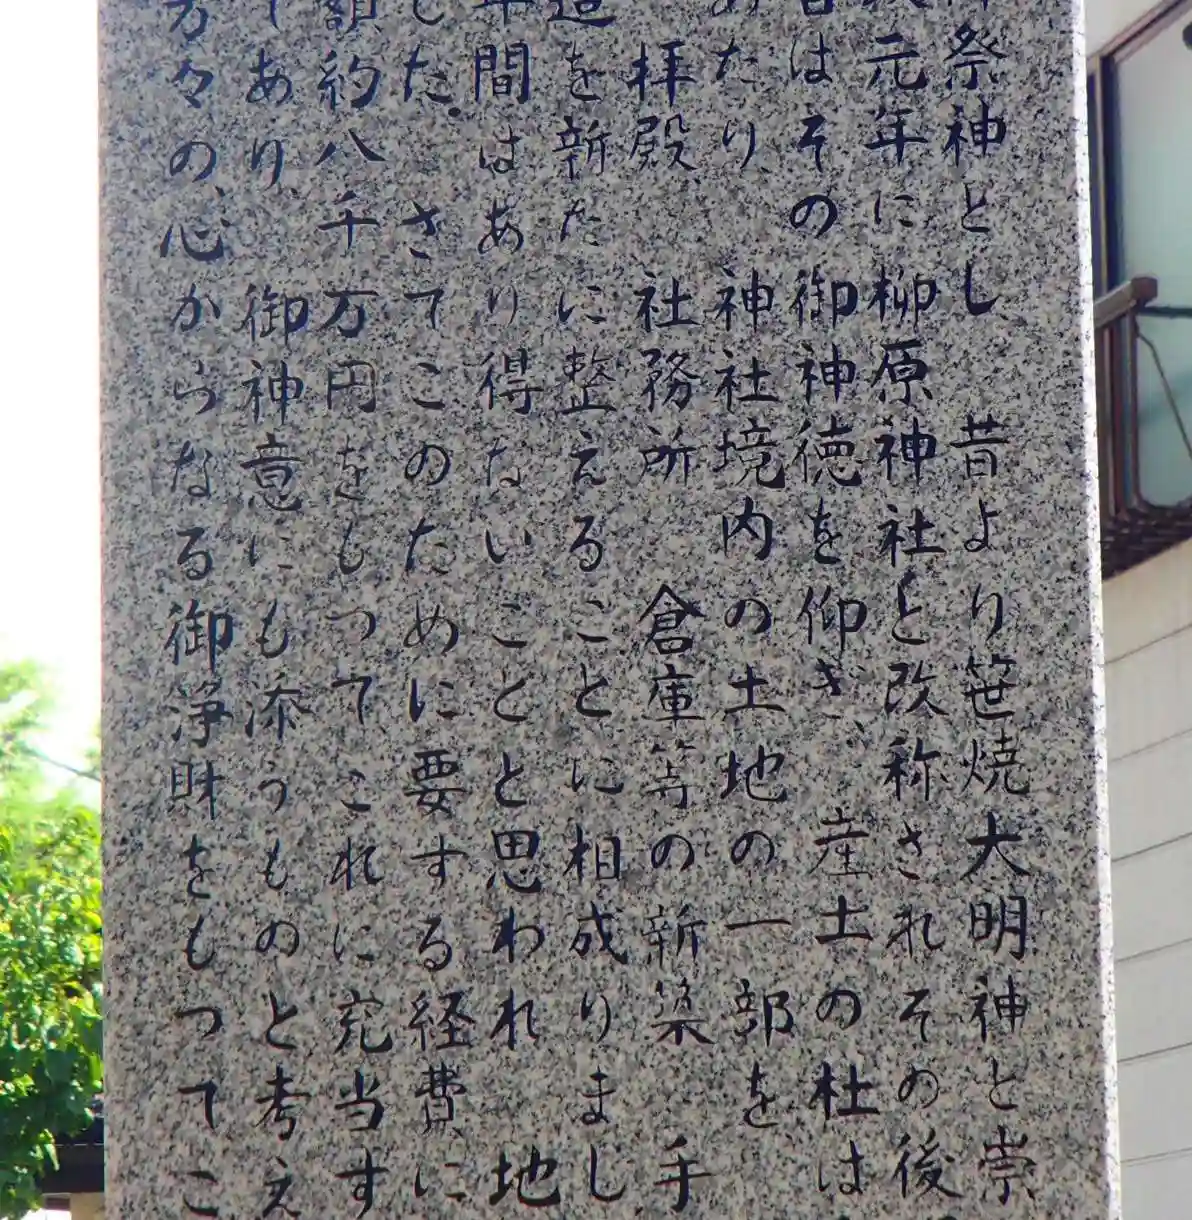 祭神とし、昔より笹焼大明神と崇
元年に柳原神社と改称されその後
はその御神徳を仰ぎ、産土の杜は
あたり、神社境内の土地の一部を
拝殿、社務所、倉庫等の新築、手
造を新たに整えることに相成りまし
年間はあり得ないことと思われ、地
した。さてこのために要する経費に
額約八千万円をもつてこれに充当す
てあり、御神意にも添うものと考え
方々の、心からなる御浄財をもつてこ